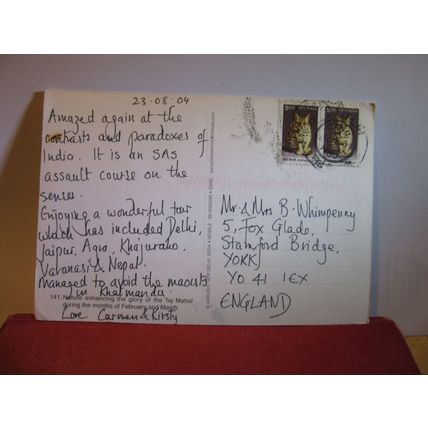 23.08.04
Amazed again at the
contrasts and paradoxes of
India. It is an SAS
assault course on the
senses.
Enjoying a wonderful tour
which has included Delhi,
Jaipur, Agra, Khajuraho,
Varanasi & Nepal.
Managed to avoid the maoists
in Khatmandu.
141. Nature enhancing the glory of the Taj Mahal
during the months of February and March.
Love Carmen & Kirsty
5.00
5.00
Mr & Mrs B. Whimpenny
5, Fox Glade,
Stamford Bridge,
YORK
YO 41 1EX
ENGLAND